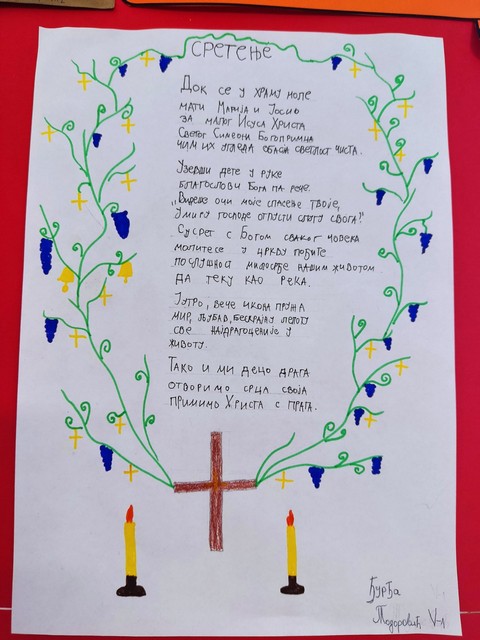 СРЕТЕЊЕ
ДОК СЕ У ХРАМУ МОЛЕ
МАТИ МАРИЈА И ЈОСИФ
ЗА МАЛОГ ИСУСА ХРИСТА
СВЕТОГ СИМЕОНА БОГОПРИМЦА
ЧИМ ИХ УГЛЕДА ОБАСЈА СВЕТЛОСТ ЧИСТА.
УЗЕВШИ ДЕТЕ У РУКЕ
БЛАГОСЛОВИ БОГА ПА РЕЧЕ.
„ВИДЕШЕ ОЧИ МОЈЕ СПАСЕЊЕ ТВОЈЕ,
У МИРУ ГОСПОДЕ ОТПУСТИ СЛУГУ СВОГА!"
СУСРЕТ С БОГОМ СВАКОГ ЧОВЕКА
МОЛИТЕСЕ У ЦРКВУ ПОЂИТЕ
ПОСЛУШНОСТ МИЛОСРЂЕ НАШИМ ЖИВОТОМ
ДА ТЕКУ КАО РЕКА.
ЈУТРО, ВЕЧЕ ИКОНА ПРУЖА
МИР, ЉУБАВ, БЕСКРАЈНУ ЛЕПОТУ
СВЕ НАЈДРАГОЦЕНИЈЕ У
ЖИВОТУ.
ТАКО И МИ ДЕЦО ДРАГА
ОТВОРИМО СРЦА СВОЈА
ПРИМИМО ХРИСТА С ПРАГА.
Ђурђа
Тодоровић V-1